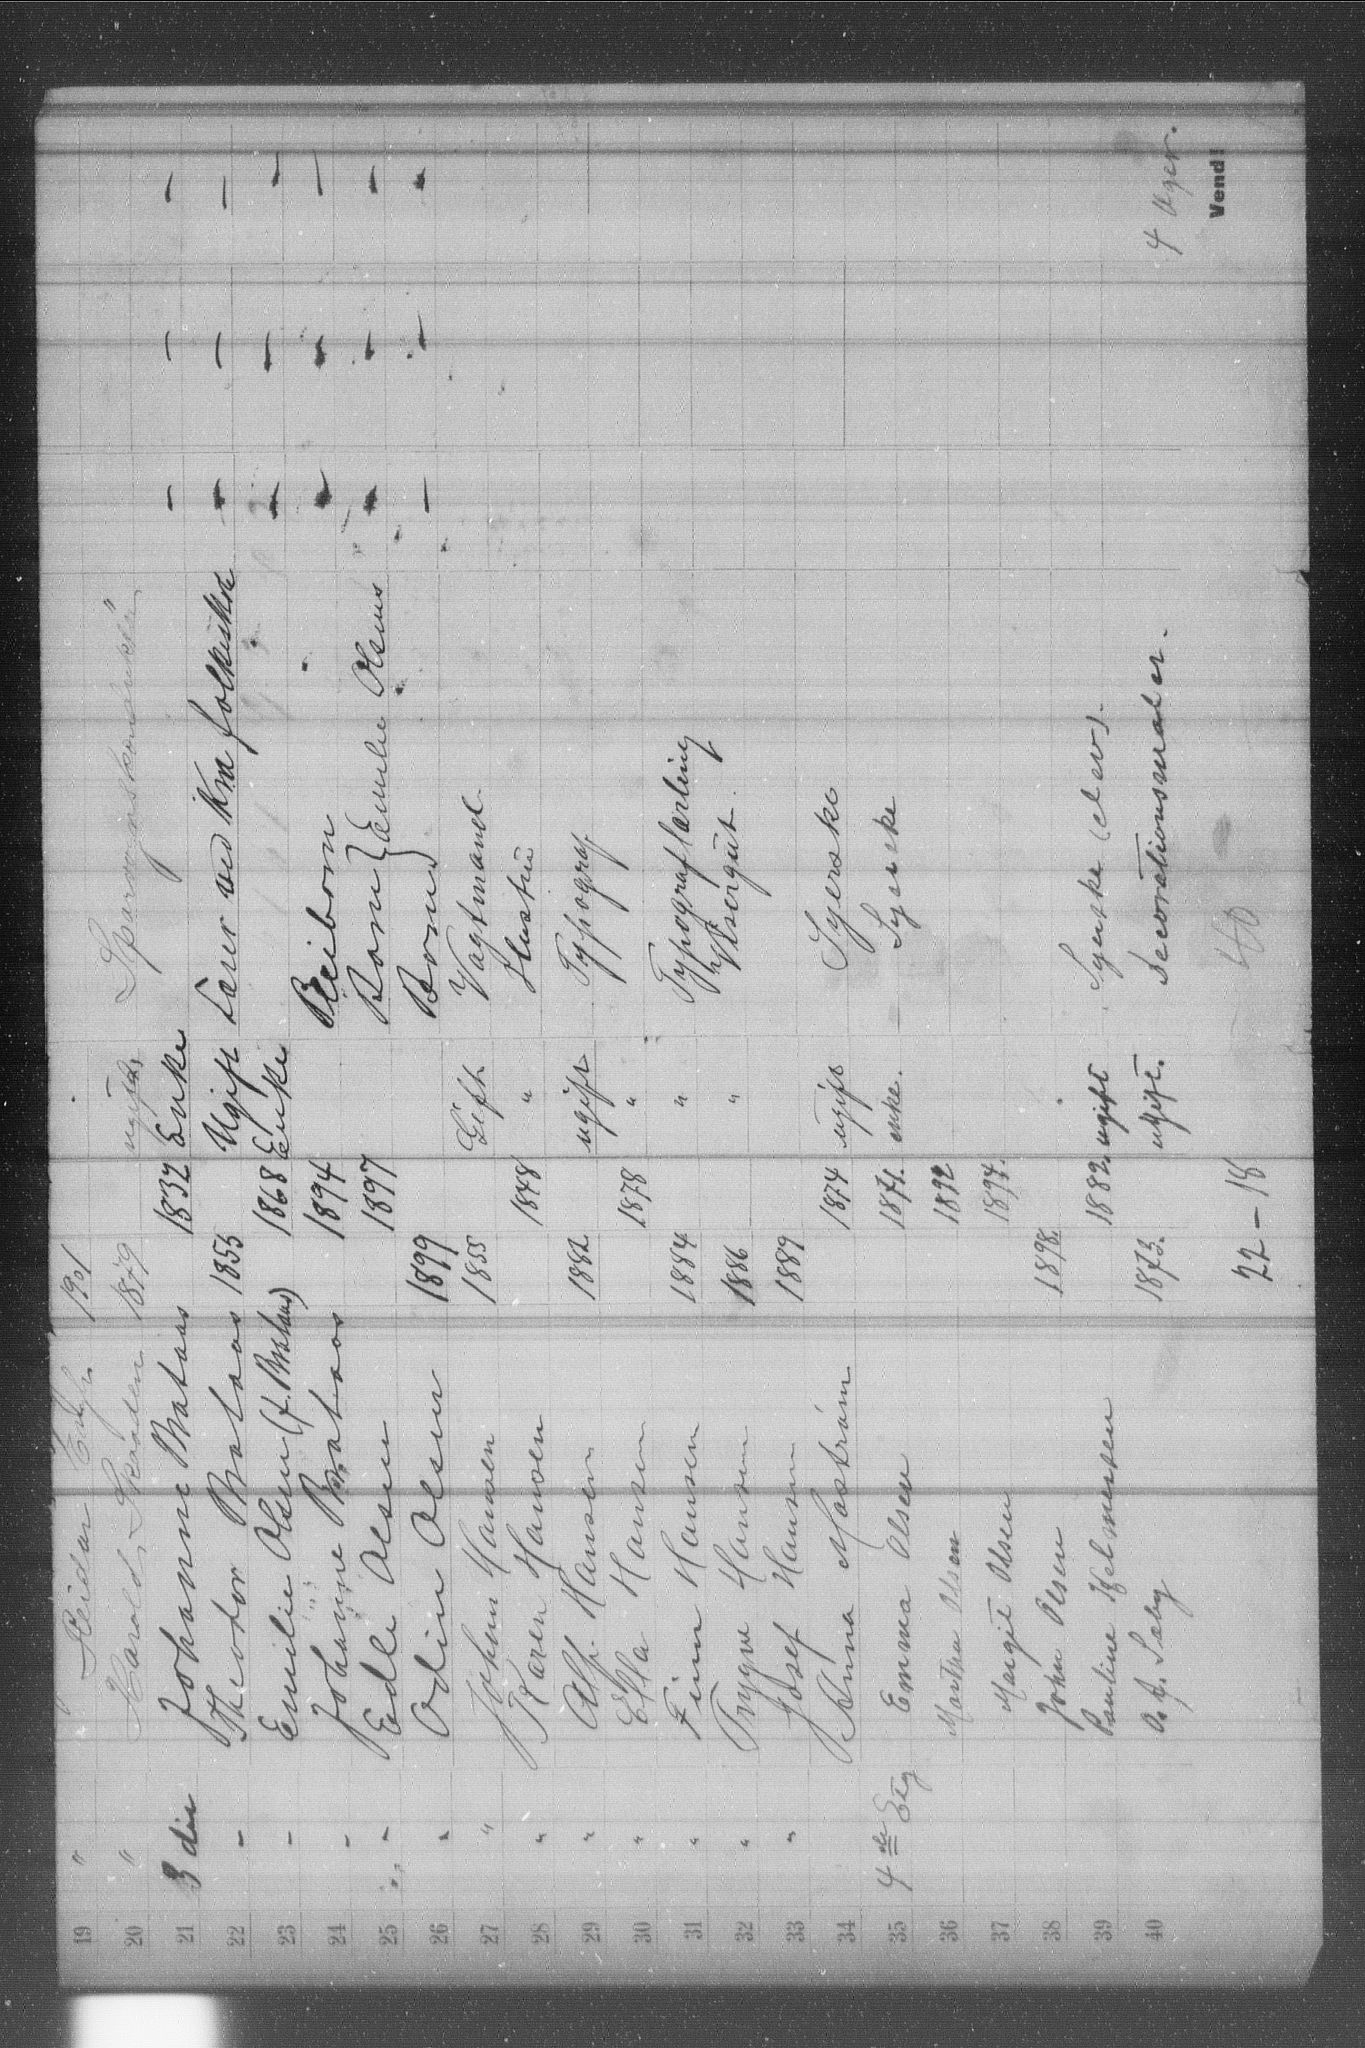 19 " Reidar 1901
20 " Harald Skaaden 1879 ugift Sporvognskonduktør
21 3die Johanne Brataas 1832 Enke - - -
22 - Theodor Brataas 1855 Ugift Lærer ved Kra folkeskole - - -
23 - Emilie Olsen (f. Brataas) 1868 Enke - - -
24 - Johanne Brataas 1894 Pleiebarn - - -
25 - Edle Olsen 1897 Barn } Emilie Olsens - - -
26 - Odin Olsen 1899 Barn - - -
27 " Johan Hansen 1855 Gift Vagtmand
28 " Karen Hansen 1848 " Hustru
29 " Alf. Hansen 1882 ugift Typograf
30 " Ella Hansen 1878 "
31 " Finn Hansen 1884 " Typograflærling
32 " Trygve Hansen 1886 " Visergut
33 " Josef Hansen 1889
34 Anna Mostrøm 1874 ugift Syerske
35 4de Etg Emma Olsen 1871. enke. Syerske
36 Martha Olsen 1892
37 Margit Olsen 1894.
38 John Olsen 1898.
39 Pauline Hjelmensen 1882. ugift Syerske (elev).
40 O. J. Sæby 1873. ugift. Decorationsmaler. 4 Uger.
Vend!
22-18 40